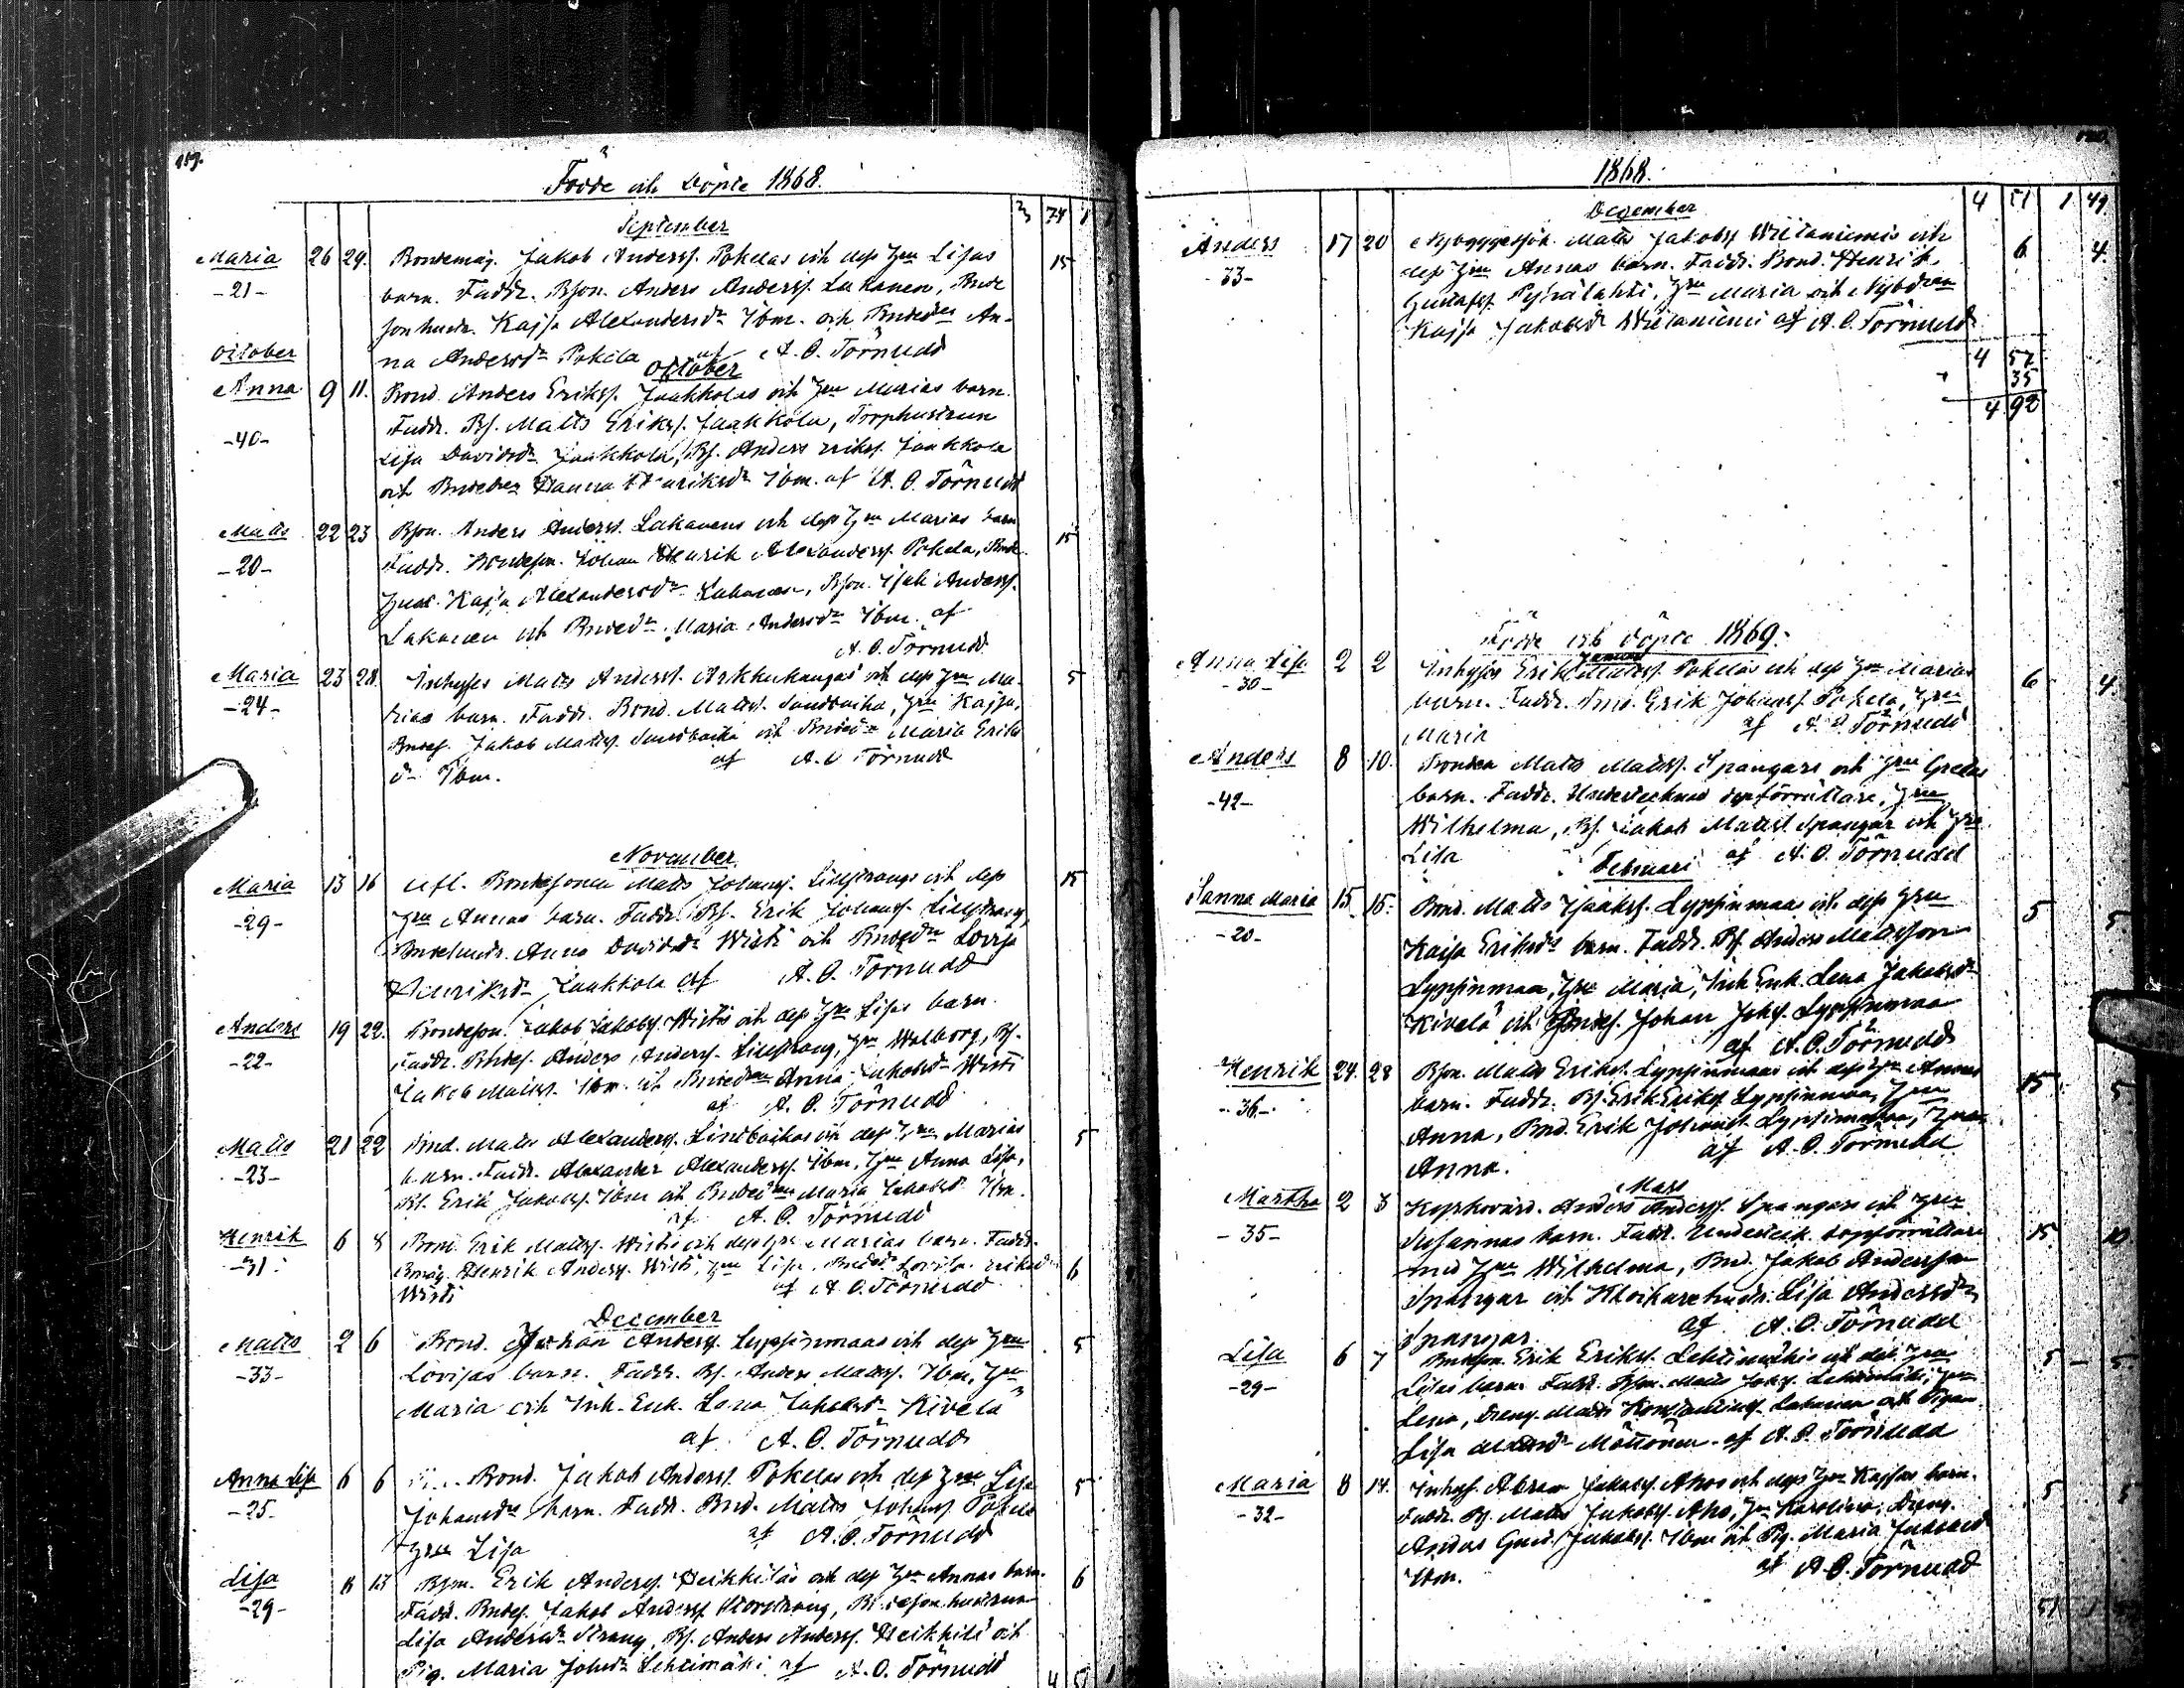 159.
Födde och döpte 1868.
3 74 1
September
Maria 26 29. Bondemåg. Jakob Anderss. Pokelas och dess hru Lisas 15
-21- barn. Faddr. Bson. Anders Anderss. Lakanen, Bonde
sonhustr. Kajsa Alexandersdr Ibm. och An-
na Andersdr Pokela af A. O. Törnudd
October
October
Anna 9 11. Bond. Anders Erikss. Jaakkolas och hru Marias barn.
-40- Faddr. Bs. Matts Erikss. Jaakkola, Torphustrun
Lisa Davidsdr Jaakkola, Bs. Anders Erikss. Jaakkola
och Sanna Henriksdr Ibm. af A. O. Törnudd
Matts 22 23 Bson. Anders Anderss. Lakanens och dess hru Marias barn 15
-20- Faddr. Bondeson. Johan Henrik Alexanderss. Pokela,
Kajsa Alexandersdr Lakanen, Bson. Isak Anderss.
Lakanen och Maria Andersdr Ibm. af
A. O. Törnudd
Maria 23 28. Inhyses Matts Anderss. Arkkukangas och dess hru Ma- 5
-24- rias barn. Faddr. Bond. Matts. Sandbacka, hru Kajsa,
Jakob Mattss. Sandbacka och Maria Eriks
dr Ibm. af A. O. Törnudd
November
Maria 13 16 Afl. Bondesonen Matts Johanss. Lillstrangs och dess 15
-29- hru Annas barn. Faddr. Bs. Erik Johanss. Lillstrang,
Anna Davidsdr Wisti och Lovisa
Henriksdr Jaakkola af A. O. Törnudd
Anders 19 22. Bondeson. Jakob Jakobss. Wistis och dess hru Lisas barn.
-22- Faddr. Anders Anderss. Lillstrang, hru Walborg, Bs.
Jakob Mattss. Ibm. och Anna Jakobsdr Wisti
af A. O. Törnudd
Matts 21 22 Bnd. Matts Alexanderss. Lintbackas och dess hru Marias 5
-23- barn. Faddr. Alexander Alexanderss. Ibm, hru Anna Lisa,
Bs. Erik Jakobss. Ibm och Maria Jakobsdr Ibm.
af A. O. Törnudd
Henrik 6 8 Bond. Erik Mattss. Wistis och dess hru Marias barn. Faddr.
-31- Bmåg. Henrik Anderss. Wisti, hru Lisa, Lovisa Eriksdr 6
Wisti af A. O. Törnudd
December
Matts 2 6 Bond. Johan Anderss. Lyppinmaas och dess hru 5
-33- Lovisas barn. Faddr. Bs. Anders Mattss. Ibm, hru
Maria och Inh. Enk. Lena Jakobsdr Kivelä
af A. O. Törnudd
Anna Lisa 6 6 Bond. Jakob Anderss. Pokelas och dess hru Lisa 5
-25- Johansdr barn. Faddr. Bnd. Matts Johanss. Pokela
hru Lisa af A. O. Törnudd
Lisa 8 13 Bson. Erik Anderss. Heikkiläs och dess hru Annas barn. 6
-29- Faddr. Jakob Anderss. Storstrang, hustrun
Lisa Andersdr Strang, Bs. Anders Anderss. Heikkilä och
Pig. Maria Johsdr Lehtimäki af A. O. Törnudd
4 51 1
1868.
December
4 51 1 49
Anders 17 20 Matts Jakobss Wietaniemis och 6 4
-33- dess hru Annas barn. Faddr. Bond. Henrik
Gustafss. Pyhälahti, hru Maria och
Kajsa Jakobsdr Wietaniemi af A. O. Törnudd
4 57
35
4 92
Födde och döpte 1869.
Januari
Anna Lisa 2 2 Inhyses Erik Mattss. Pokelas och dess hru Marias 6 4
-30- barn. Faddr. Bnd. Erik Johanss. Pokela, hru
Maria af A. O. Törnudd
Anders 8 10. Bonden Matts Mattss. Spangars och hru Gretas
-42- barn. Faddr. Undertecknad dopförrättare, hru
Wilhelma, Bs. Jakob Mattss. Spangar och hru
Lisa af A. O. Törnudd
Februari
Sanna Maria 15 15. Bond. Matts Isakss. Lyppinmaas och dess hru 5 5
-20- Kajsa Eriksdr barn. Faddr. Bs. Anders Mattsson
Lyppinmaa, hru Maria, Inh Enk. Lena Jakobsdr
Kivelä och Johan Johss. Lyppinmaa
af A. O. Törnudd
Henrik 24. 28 Bson. Matts Erikss. Lyppinmaas och dess hru Annas 15 5
-36- barn. Faddr. Bs. Erik Erikss. Lyppinmaa, hru
Anna, Bnd. Erik Johanss. Lyppinmaa, hru
Anna. af A. O. Törnudd
Mars
Martha 2 3 Kyrkovärd. Anders Anderss. Spangars och hru
-35- Susannas barn. Faddr. Underteck. dopförrättare 15 10
med hru Wilhelma, Bnd. Jakob Andersson
Spangar och Lisa Andersdr
Spangar. af A. O. Törnudd
Lisa 6 7 Bondeson. Erik Erikss. Lehtimäkis och dess hru 5 - 5
-29- Lisas barn. Faddr. Bson. Matts Johss. Lehtimäki, hru
Lena, Dreng. Matts Lakanen och Pigan
Lisa Möttönen af A. O. Törnudd
Maria 8 14. Inhys. Abram Jakobss. Ahos och dess hru Kajsas barn. 5 5
-32- Faddr. Bs. Matts Jakobss. Aho, hru Karolina, Dreng.
Anders Gust. Jakobss. Ibm och Pig. Maria Jakobsdr
Ibm. af A. O. Törnudd
51 1